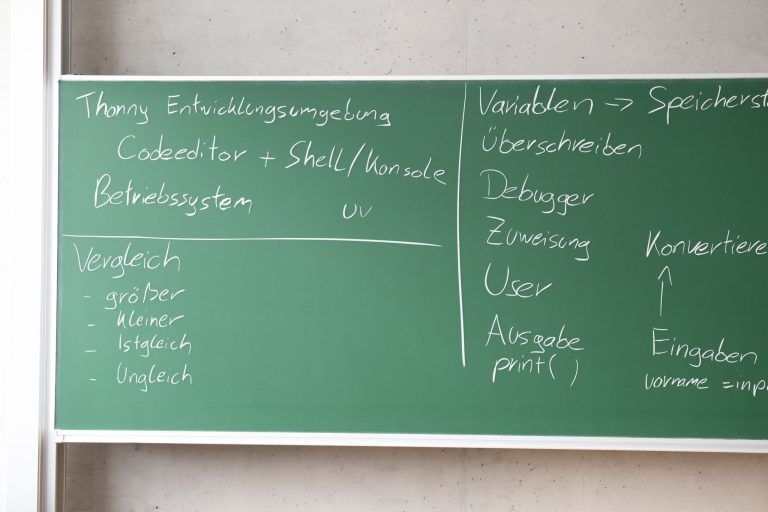 Thonny Entwicklungsumgebung
Codeeditor + Shell/Konsole
Betriebssystem uv
Vergleich
- größer
- kleiner
- Istgleich
- Ungleich
Variablen → Speicherst
Überschreiben
Debugger
Zuweisung
User
Ausgabe
print( )
Konvertiere
↑
Eingaben
vorname = inp